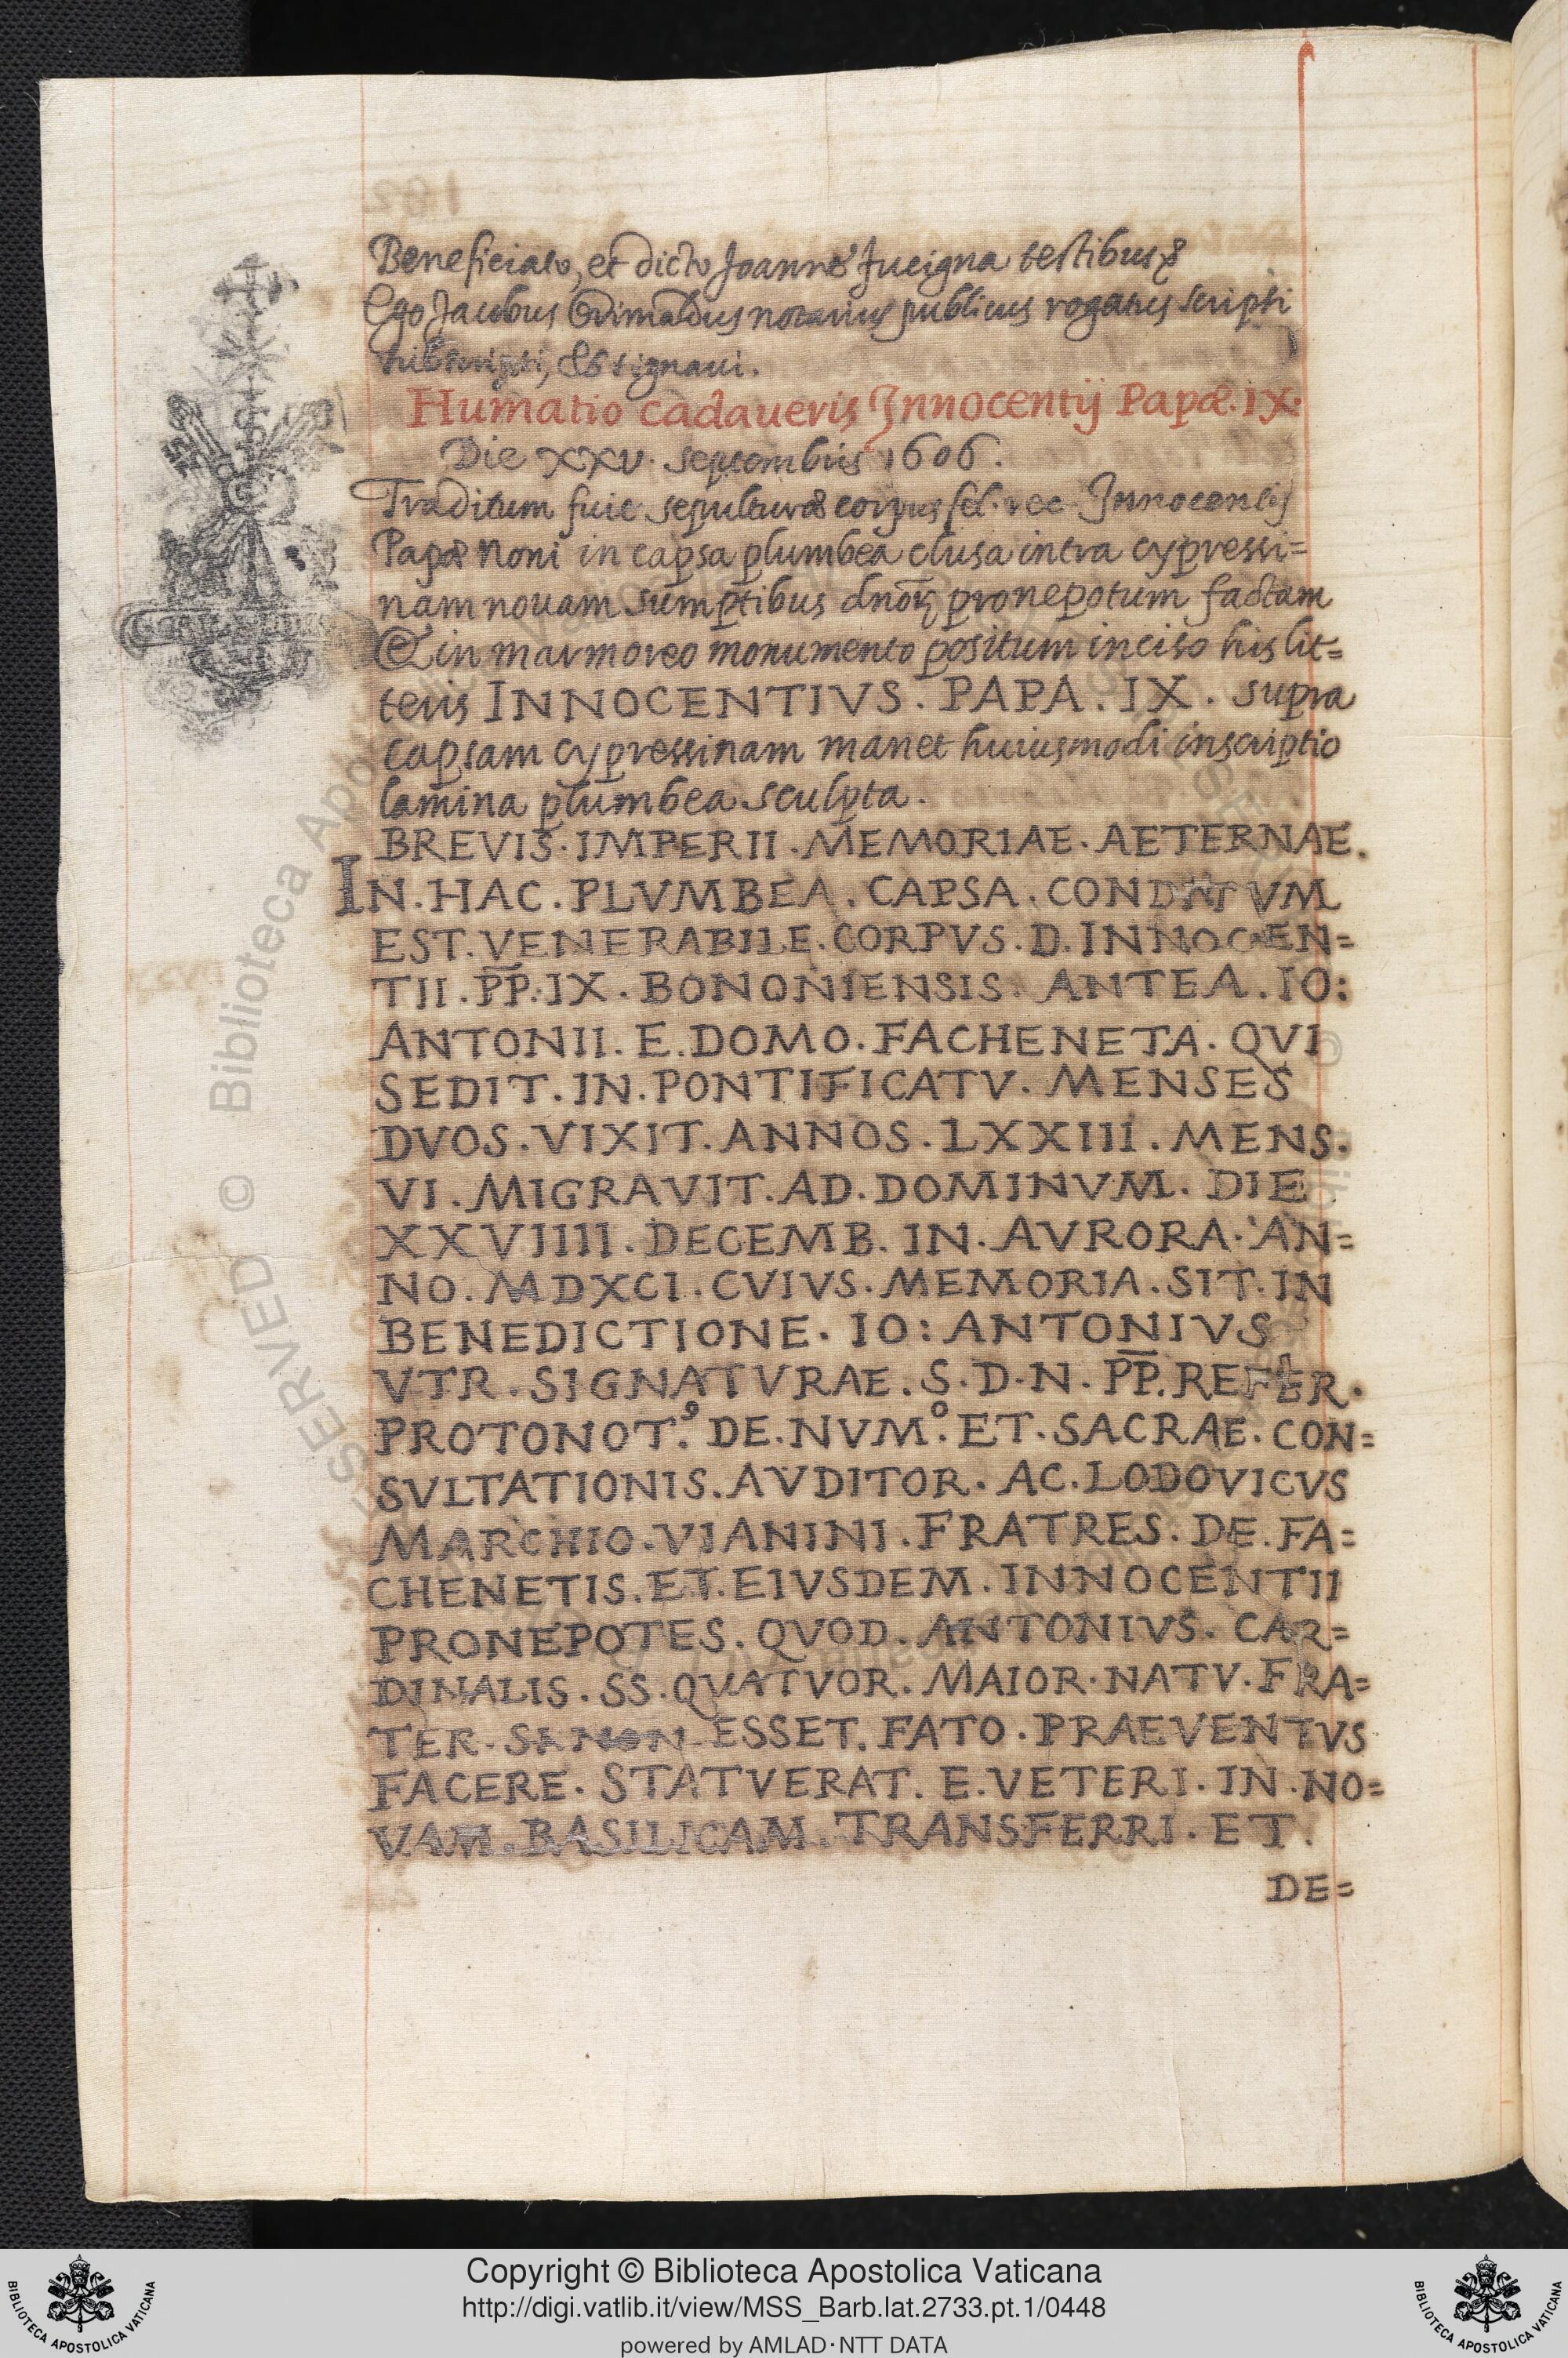 Beneficiato, et dicto Joanne Fucigna testibus &
Ego Jacobus Grimaldus notarius publicus rogatus scripsi
subscripsi, & signaui.
Humatio cadaueris Jnnocentij Papæ. IX.
Die XXV. septembris 1606.
Traditum fuit sepulturæ corpus fel. rec. Jnnocentij
Papæ Noni in capsa plumbea clusa intra cypressi=
nam nouam sumptibus dnoꝝ pronepotum factam
& in marmoreo monumento positum inciso his lit=
teris INNOCENTIVS. PAPA. IX. supra
capsam cypressinam manet huiusmodi inscriptio
lamina plumbea sculpta.
BREVIS. IMPERII. MEMORIAE. AETERNAE.
IN. HAC. PLVMBEA. CAPSA. CONDITVM
EST. VENERABILE. CORPVS. D. INNOCEN=
TII. P̅P̅. IX. BONONIENSIS. ANTEA. IO:
ANTONII. E. DOMO. FACHENETA. QVI
SEDIT. IN. PONTIFICATV. MENSES
DVOS. VIXIT. ANNOS. LXXIII. MENS.
VI. MIGRAVIT. AD. DOMINVM. DIE
XXVIIII. DECEMB. IN. AVRORA. AN=
NO. MDXCI. CVIVS. MEMORIA. SIT. IN
BENEDICTIONE. IO: ANTONIVS
VTR. SIGNATVRAE. S. D. N. P̅P̅. REFER.
PROTONOT.⁹ DE. NVM.º ET. SACRAE. CON=
SVLTATIONIS. AVDITOR. AC. LODOVICVS
MARCHIO. VIANINI. FRATRES. DE. FA=
CHENETIS. ET. EIVSDEM. INNOCENTII
PRONEPOTES. QVOD. ANTONIVS. CAR=
DINALIS. SS. QVATVOR. MAIOR. NATV. FRA=
TER. SI NON ESSET. FATO. PRAEVENTVS
FACERE. STATVERAT. E. VETERI. IN. NO=
VAM. BASILICAM. TRANSFERRI. ET.
DE=
Copyright © Biblioteca Apostolica Vaticana
http://digi.vatlib.it/view/MSS_Barb.lat.2733.pt.1/0448
powered by AMLAD·NTT DATA